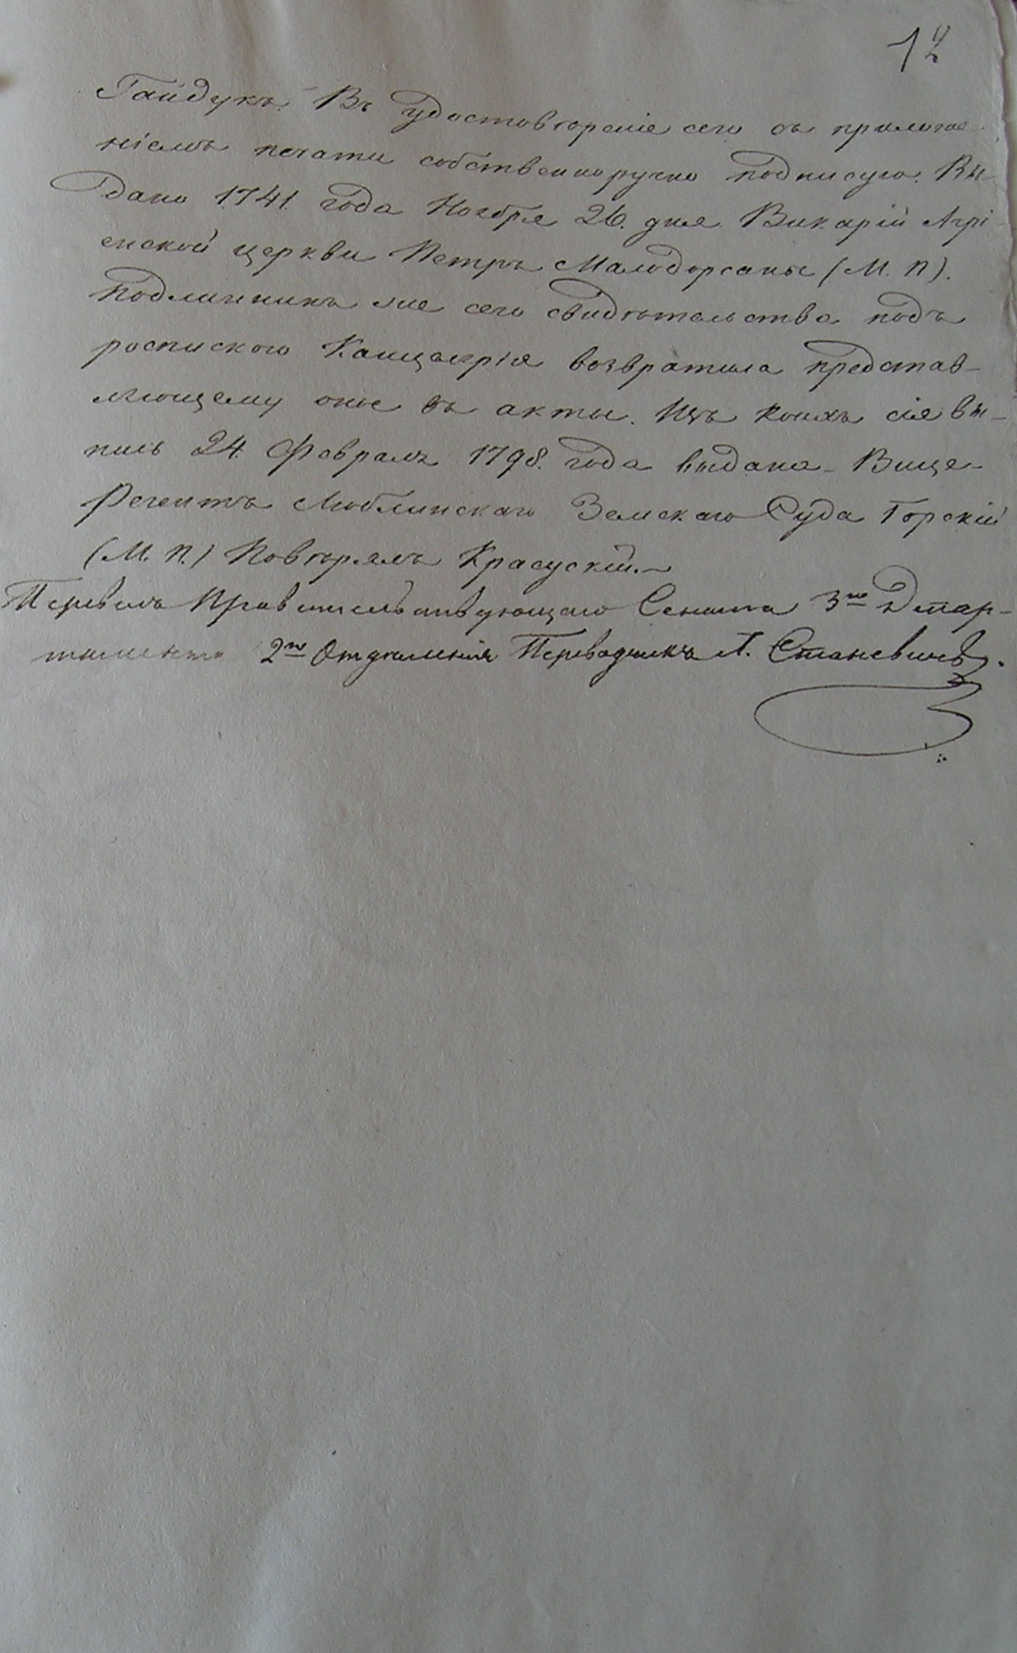 12
Гайдукъ. Въ удостовѣреніе сего съ приложе-
ніемъ печати собственноручно подписую. Вы-
дано 1741 года Ноября 26. дня Викарій Агрі-
енской церкви Петръ (М. П.).
Подлинникъ же сего свидѣтельства подъ
роспискою Канцелярія возвратила представ-
ляющему оное въ акты. Изъ коихъ сія вы-
пись 24. Февраля 1798. года выдана. Вице-
Регентъ Люблинскаго Земскаго Суда Горскій
(М. П.) Повѣрялъ Красускій.
Перевелъ Правительствующаго Сената 3го Депар-
тамента 2го Отдѣленія Переводчикъ Л. Станевичъ.